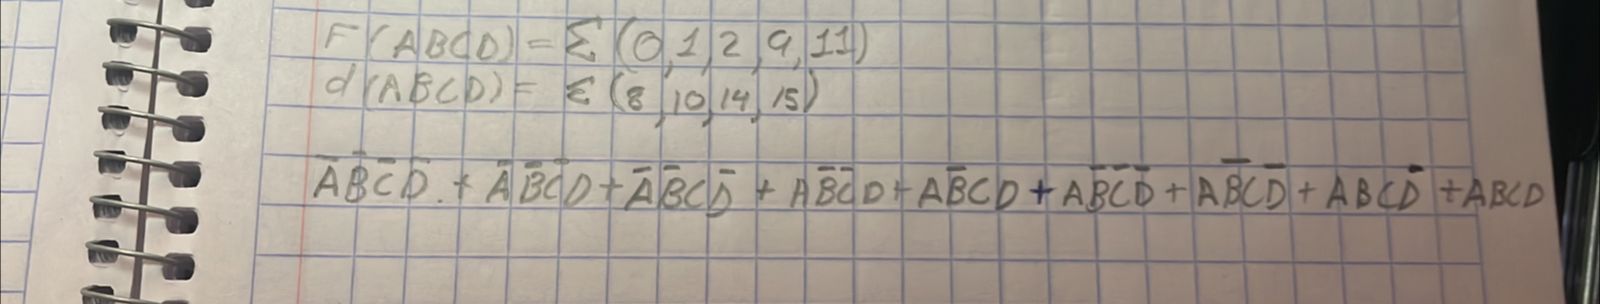 F(ABCD) = Σ(0,1,2,9,11)
d(ABCD) = Σ(8,10,14,15)
A̅B̅C̅D̅ + A̅B̅C̅D + A̅B̅CD̅ + AB̅C̅D + AB̅CD + AB̅C̅D̅ + AB̅CD̅ + ABCD̅ + ABCD